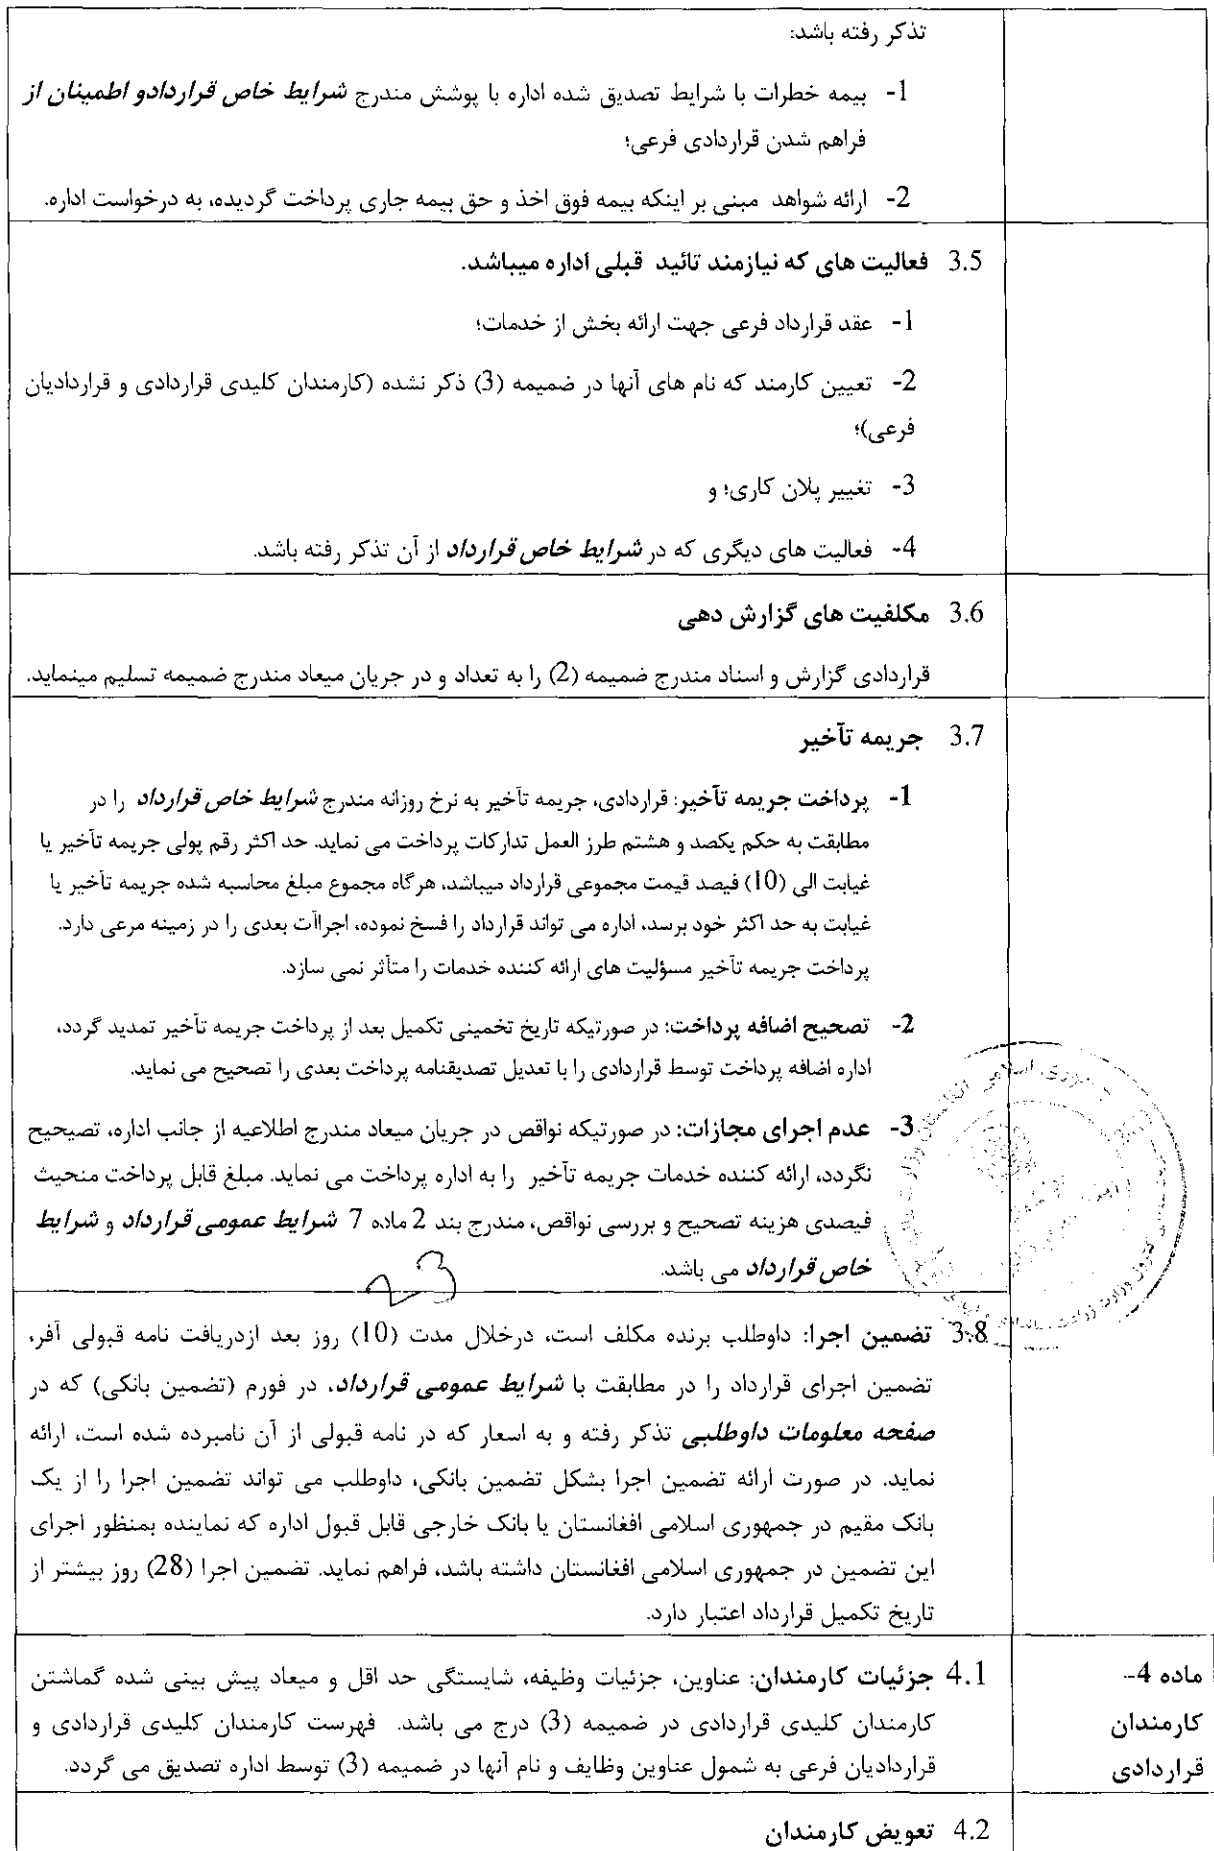 تذکر رفته باشد:
1- بیمه خطرات با شرایط تصدیق شده اداره با پوشش مندرج شرایط خاص قراردادو اطمینان از
فراهم شدن قراردادی فرعی؛
2- ارائه شواهد مبنی بر اینکه بیمه فوق اخذ و حق بیمه جاری پرداخت گردیده، به درخواست اداره.
3.5 فعالیت های که نیازمند تائید قبلی اداره میباشد.
1- عقد قرارداد فرعی جهت ارائه بخش از خدمات؛
2- تعیین کارمند که نام های آنها در ضمیمه (3) ذکر نشده (کارمندان کلیدی قراردادی و قراردادیان
فرعی)؛
3- تغییر پلان کاری؛ و
4- فعالیت های دیگری که در شرایط خاص قرارداد از آن تذکر رفته باشد.
3.6 مکلفیت های گزارش دهی
قراردادی گزارش و اسناد مندرج ضمیمه (2) را به تعداد و در جریان میعاد مندرج ضمیمه تسلیم مینماید.
3.7 جریمه تآخیر
1- پرداخت جریمه تآخیر: قراردادی، جریمه تآخیر به نرخ روزانه مندرج شرایط خاص قرارداد را در
مطابقت به حکم یکصد و هشتم طرز العمل تدارکات پرداخت می نماید. حد اکثر رقم پولی جریمه تآخیر یا
غیابت الی (10) فیصد قیمت مجموعی قرارداد میباشد، هرگاه مجموع مبلغ محاسبه شده جریمه تآخیر یا
غیابت به حد اکثر خود برسد، اداره می تواند قرارداد را فسخ نموده، اجراآت بعدی را در زمینه مرعی دارد.
پرداخت جریمه تآخیر مسؤلیت های ارائه کننده خدمات را متآثر نمی سازد.
2- تصحیح اضافه پرداخت: در صورتیکه تاریخ تخمینی تکمیل بعد از پرداخت جریمه تآخیر تمدید گردد،
اداره اضافه پرداخت توسط قراردادی را با تعدیل تصدیقنامه پرداخت بعدی را تصحیح می نماید.
3- عدم اجرای مجازات: در صورتیکه نواقص در جریان میعاد مندرج اطلاعیه از جانب اداره، تصیحیح
نگردد، ارائه کننده خدمات جریمه تآخیر را به اداره پرداخت می نماید. مبلغ قابل پرداخت منحیث
فیصدی هزینه تصحیح و بررسی نواقص، مندرج بند 2 ماده 7 شرایط عمومی قرارداد و شرایط
خاص قرارداد می باشد.
3.8 تضمین اجرا: داوطلب برنده مکلف است، درخلال مدت (10) روز بعد ازدریافت نامه قبولی آفر،
تضمین اجرای قرارداد را در مطابقت با شرایط عمومی قرارداد، در فورم (تضمین بانکی) که در
صفحه معلومات داوطلبی تذکر رفته و به اسعار که در نامه قبولی از آن نامبرده شده است، ارائه
نماید. در صورت ارائه تضمین اجرا بشکل تضمین بانکی، داوطلب می تواند تضمین اجرا را از یک
بانک مقیم در جمهوری اسلامی افغانستان یا بانک خارجی قابل قبول اداره که نماینده بمنظور اجرای
این تضمین در جمهوری اسلامی افغانستان داشته باشد، فراهم نماید. تضمین اجرا (28) روز بیشتر از
تاریخ تکمیل قرارداد اعتبار دارد.
ماده 4-
کارمندان
قراردادی
4.1 جزئیات کارمندان: عناوین، جزئیات وظیفه، شایستگی حد اقل و میعاد پیش بینی شده گماشتن
کارمندان کلیدی قراردادی در ضمیمه (3) درج می باشد. فهرست کارمندان کلیدی قراردادی و
قراردادیان فرعی به شمول عناوین وظایف و نام آنها در ضمیمه (3) توسط اداره تصدیق می گردد.
4.2 تعویض کارمندان